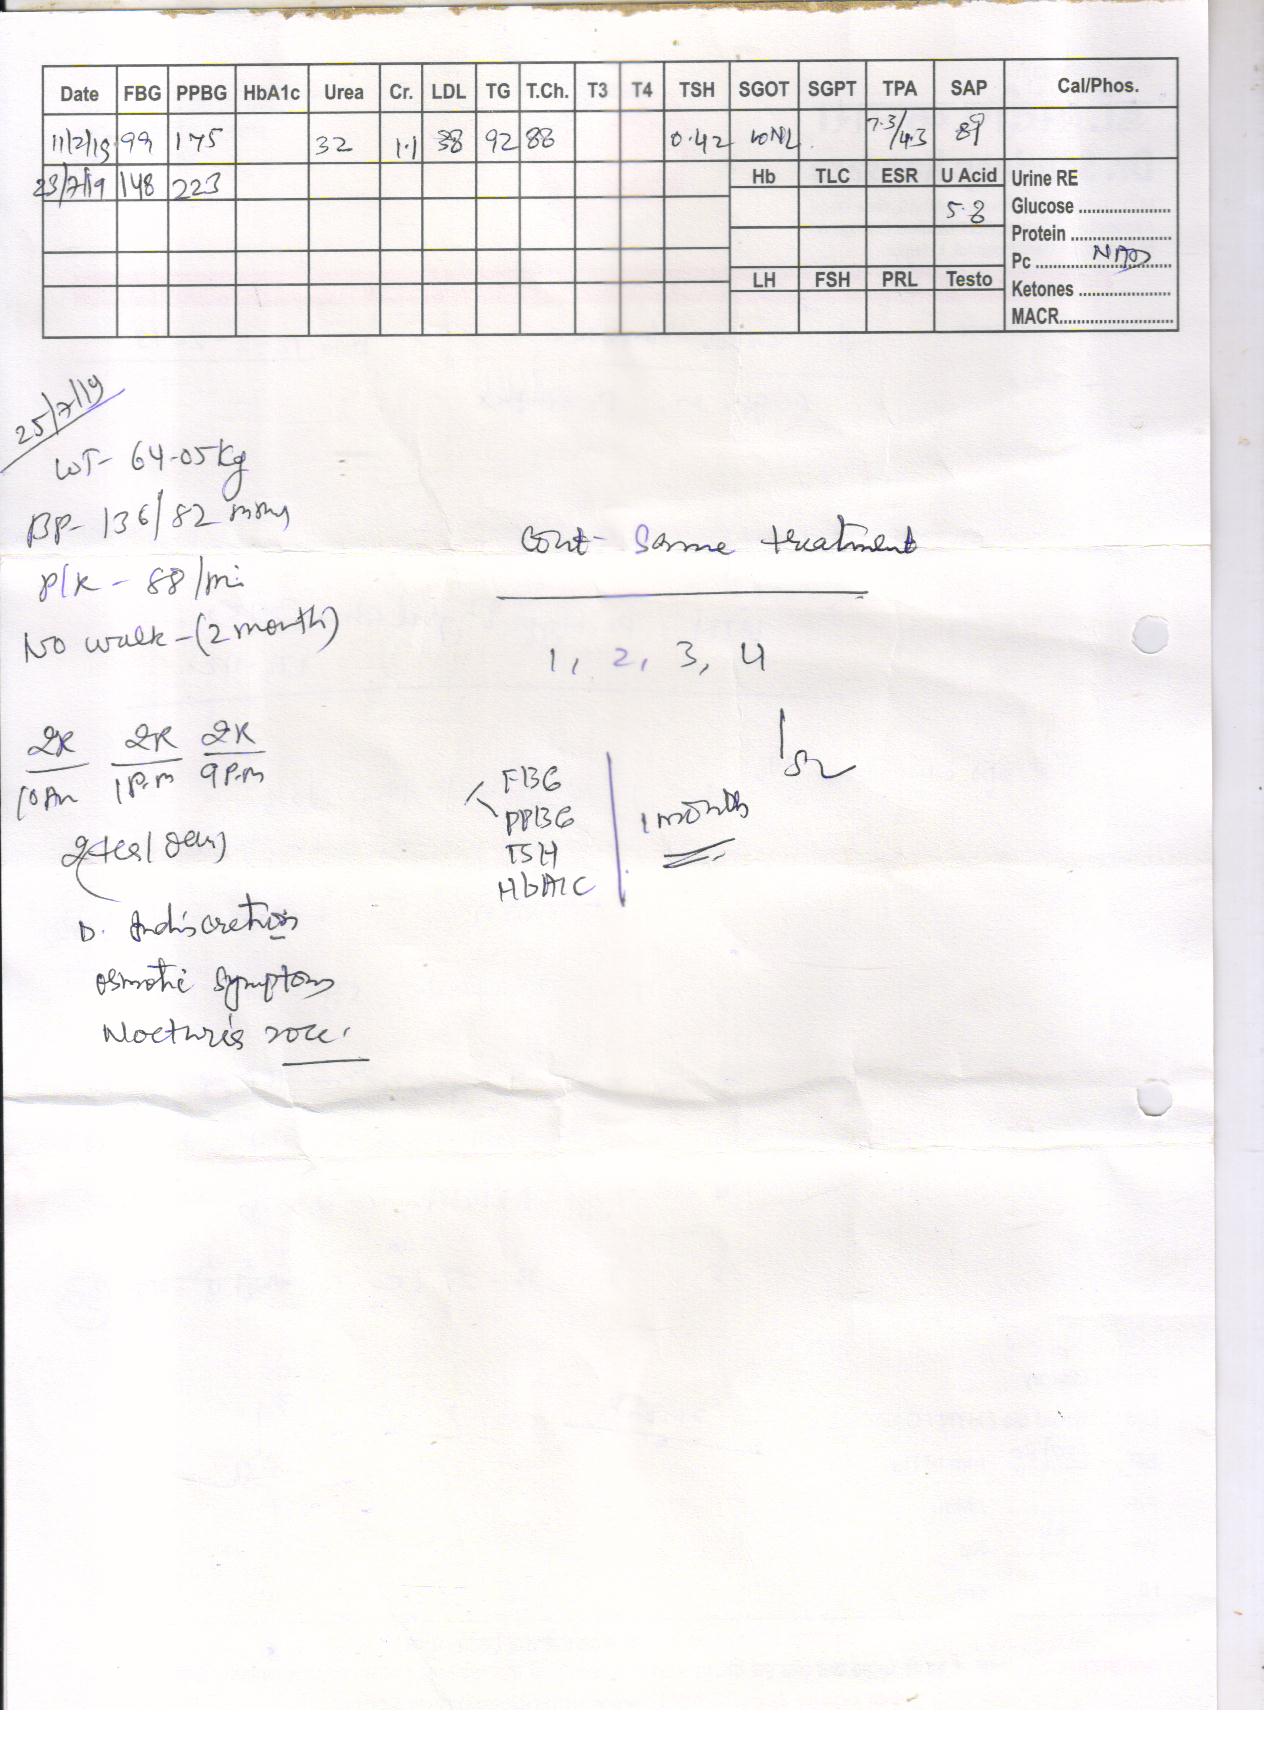 Date FBG PPBG HbA1c Urea Cr. LDL TG T.Ch. T3 T4 TSH SGOT SGPT TPA SAP Cal/Phos.
11/2/19 99 175 32 1.1 38 92 88 0.42 WNL 7.3/4.3 89
23/7/19 148 223
Hb TLC ESR U Acid Urine RE
5.8 Glucose
Protein
Pc NAD
LH FSH PRL Testo Ketones
MACR
25/7/19
WT- 64.05kg
BP- 136/82 mmHg
P/R - 88/mi
No walk - (2 month)
Cont- Same treatment
1, 2, 3, 4
2R 2R 2R
10Am 1P.m 9P.m
D. Indiscretion
osmotic symptoms
Nocturia
FBG
PPBG
TSH
HbA1C
1 month